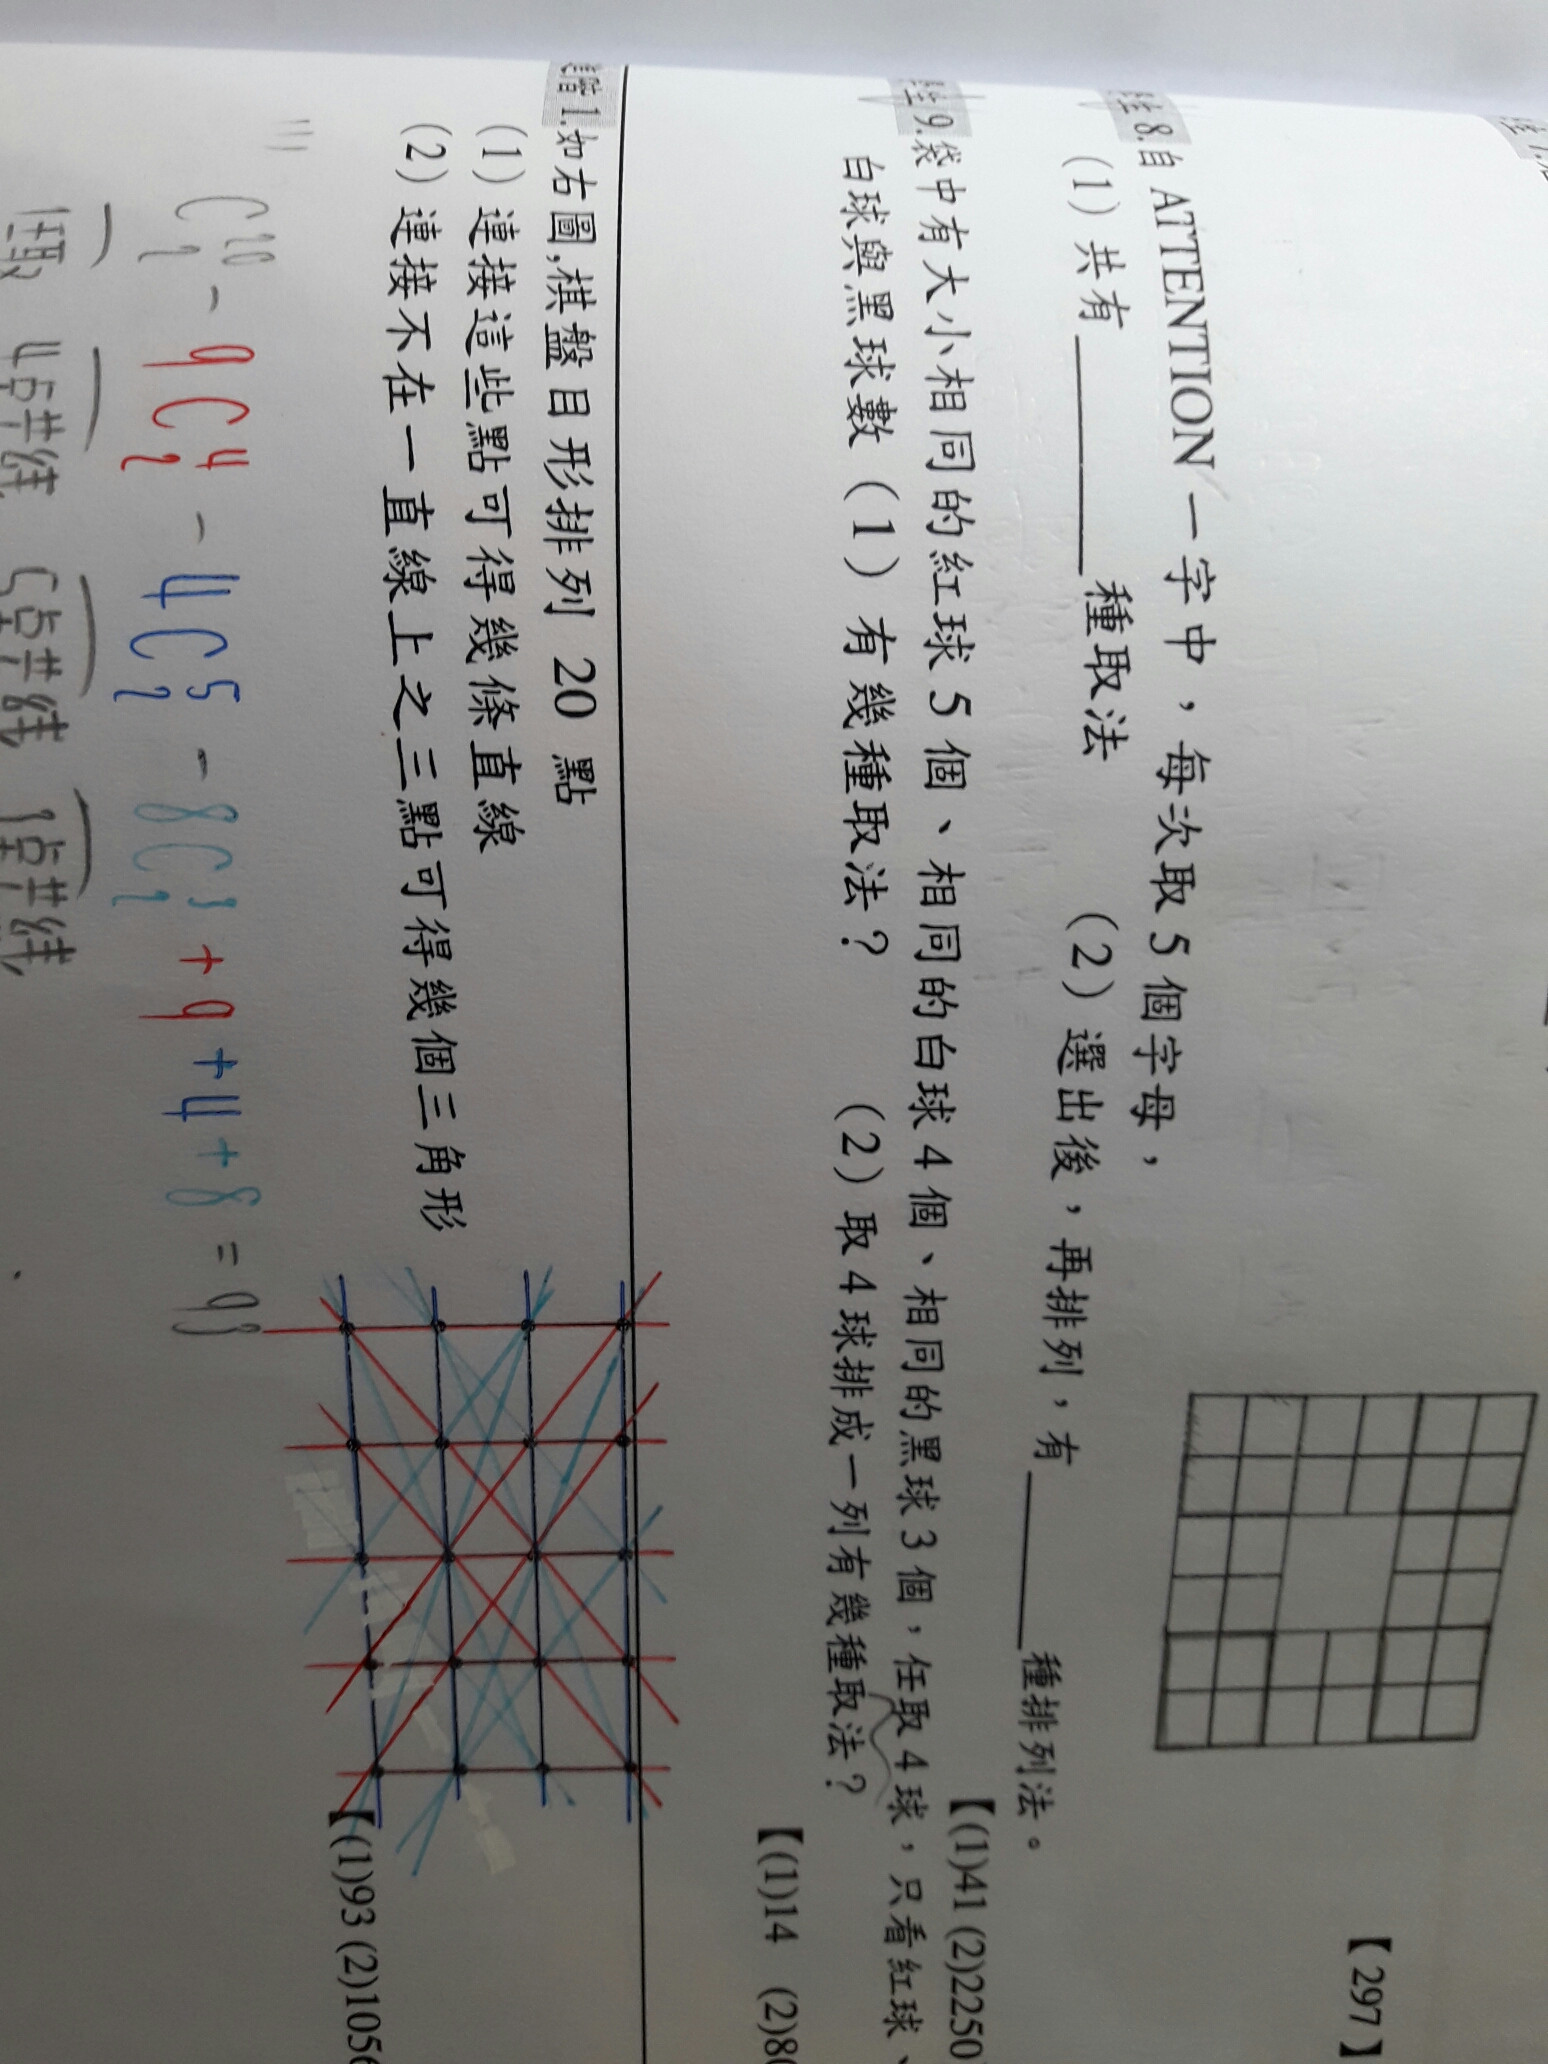 【297】
8.自 ATTENTION 一字中，每次取 5 個字母，
(1) 共有 種取法 (2) 選出後，再排列，有 種排列法。
【(1)41 (2)2250
9.袋中有大小相同的紅球 5 個、相同的白球 4 個、相同的黑球 3 個，任取 4 球，只看紅球、
白球與黑球數 (1) 有幾種取法？ (2) 取 4 球排成一列有幾種取法？
【(1)14 (2)80
進階 1.如右圖,棋盤目形排列 20 點
(1) 連接這些點可得幾條直線
(2) 連接不在一直線上之三點可得幾個三角形
【(1)93 (2)1056
C 20 2 - 9 C 4 2 - 4 C 5 2 - 8 C 3 2 + 9 + 4 + 8 = 93
任取 4點共線 5點共線 3點共線